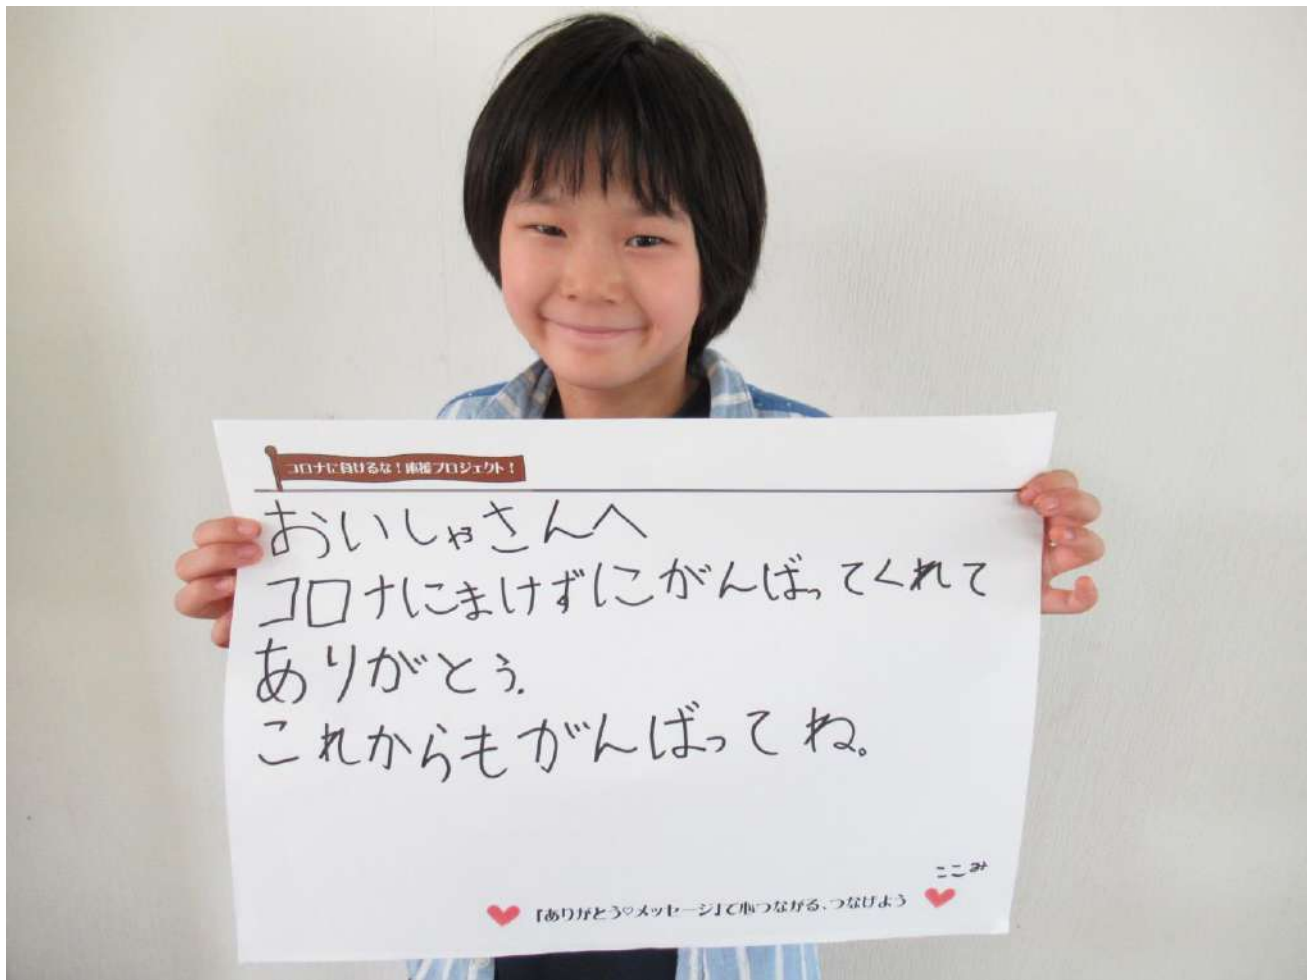 コロナに負けるな！応援プロジェクト！
おいしゃさんへ
コロナにまけずにがんばってくれて
ありがとう.
これからもがんばってね。
ここみ
「ありがとう♡メッセージ」で心つながる、つなげよう